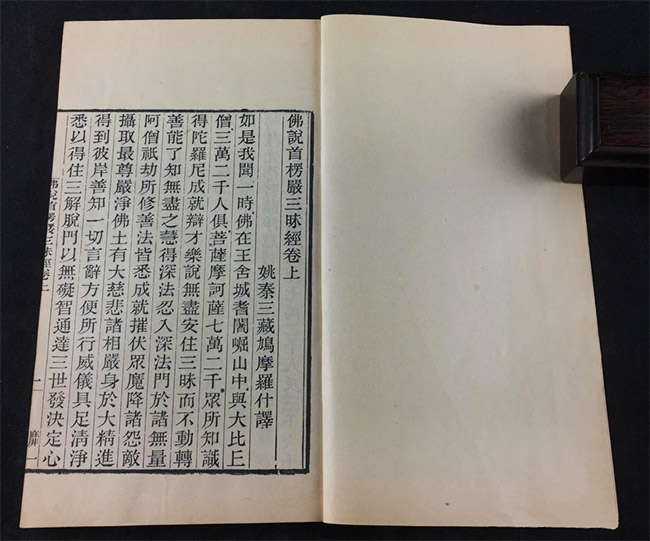 佛說首楞嚴三昧經卷上
姚秦三藏鳩摩羅什譯
如是我聞一時佛在王舍城耆闍崛山中與大比丘
僧三萬二千人俱菩薩摩訶薩七萬二千眾所知識
得陀羅尼成就辯才樂說無盡安住三昧而不動轉
善能了知無盡之慧得深法忍入深法門於諸無量
阿僧祇劫所修善法皆悉成就摧伏眾魔降諸怨敵
攝取最尊嚴淨佛土有大慈悲諸相嚴身於大精進
得到彼岸善知一切言辭方便所行威儀具足清淨
悉以得住三解脫門以無礙智通達三世發決定心
佛說首楞嚴三昧經卷上 一